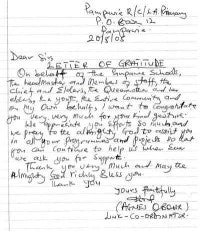 Pampawie R/C/L.A Primary
P.O. Box 12
Pampawie
20/5/08
Dear Sir
LETTER OF GRATITUDE
On behalf of the Pampawie Schools,
the headmasters and Members of staff, the
Chief and Elders, the Queenmother and her
elders, the youth, the Entire Community and
on my Own behalf, I want to congratulate
you very, very much for your kind gesture.
We appreciate your efforts so much and
we pray to the almighty God to assist you
in all your programmes and projects so that
you can continue to help us when ever
we ask you for support.
Thank you very much and may the
Almighty God richly bless you.
Thank you
Yours faithfully
(AGNES OBOUR)
LINK-CO-ORDINATOR